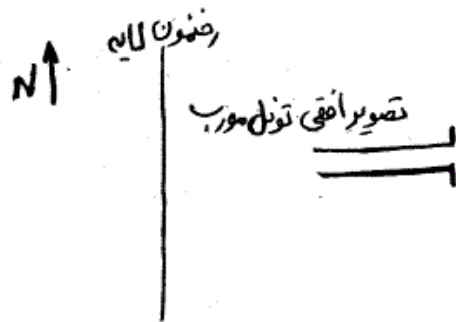 رخنمون لایه
N
تصویر افقی تونل مورب